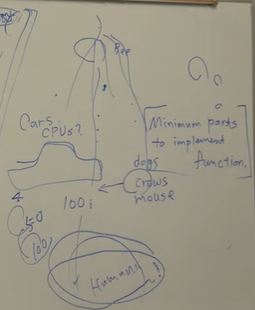 Bee
Cars.
CPUs?
Minimum parts
to implement
function.
dogs
crows
mouse
100i
4
50
100
Humans!